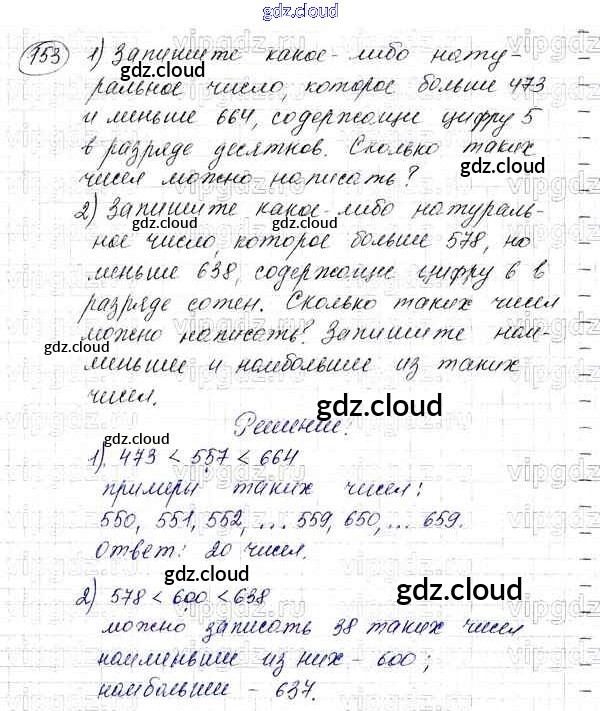 gdz.cloud
153 1) Запишите какое-либо нату-
ральное число, которое больше 473
и меньше 664, содержащие цифру 5
в разряде десятков. Сколько таких
чисел можно написать?
2) Запишите какое-либо натураль-
ное число, которое больше 578, но
меньше 638, содержащие цифру 6 в
разряде сотен. Сколько таких чисел
можно написать? Запишите наи-
меньшие и наибольшие из таких
чисел.
Решение:
1) 473 < 557 < 664
примеры таких чисел:
550, 551, 552, ... 559, 650, ... 659.
Ответ: 20 чисел.
2) 578 < 600 < 638
можно записать 38 таких чисел
наименьшие из них - 600;
наибольшие - 637.